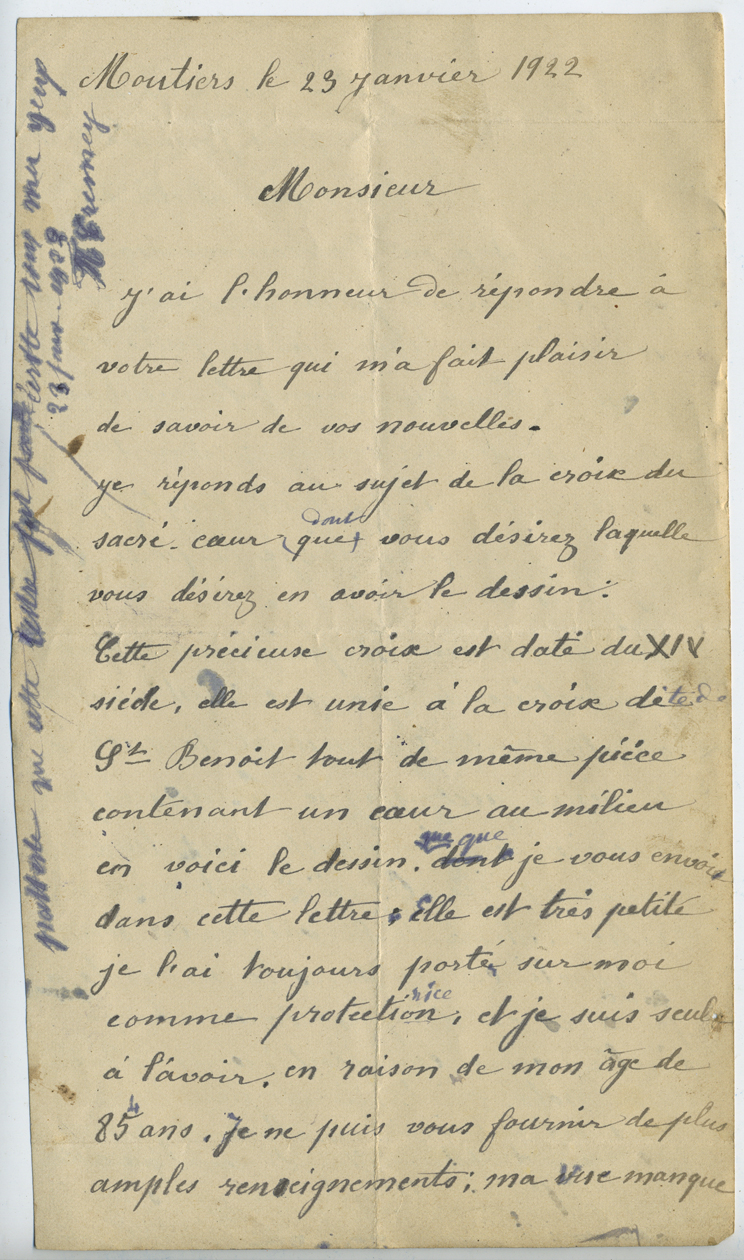 Moutiers le 23 Janvier 1922
Monsieur
J'ai l'honneur de répondre à
votre lettre qui m'a fait plaisir
de savoir de vos nouvelles.
je réponds au sujet de la croix du
dont
sacré-cœur (que) vous désirez laquelle
vous désirez en avoir le dessin.
Cette précieuse croix est daté du XIV
siècle, elle est unie à la croix dite de
St Benoit tout de même pièce
contenant un cœur au milieu
que
en voici le dessin. dont je vous envoie
dans cette lettre; elle est très petite
je l'ai toujours porté sur moi
rice
comme protection, et je suis seule
à l'avoir. en raison de mon âge de
85 ans. Je ne puis vous fournir de plus
amples renseignements; ma vue manque
que cette lettre fut écrite sous mes yeux
23 janv. 1922